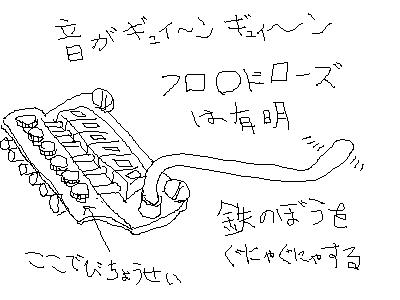 音がギュイ〜ン ギュイ〜ン
フロ〇ドローズ
は有明
鉄のぼうを
ぐにゃぐにゃする
ここでびちょうせい